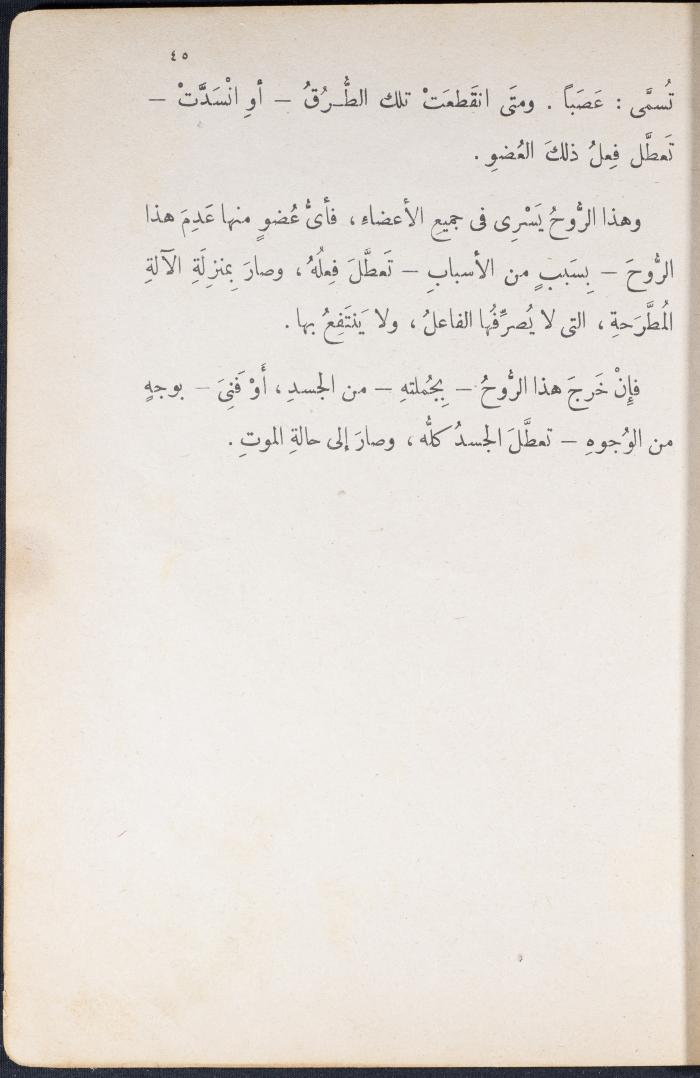 ٤٥
تُسمَّى : عَصَباً . ومتَى انقَطعَتْ تلك الطُّـرُقُ – أوِ انْسَدَّتْ –
تَعطَّل فِعلُ ذلكَ العُضوِ .
وهذا الرُّوحُ يَسْرِى فى جميعِ الأعضاءِ ، فأىُّ عُضوٍ منها عَدِمَ هذا
الرُّوحَ – بِسَببٍ من الأسبابِ – تَعطَّلَ فِعلُهُ ، وصارَ بِمنزِلَةِ الآلةِ
المُطَّرَحةِ ، التى لا يُصرِّفُها الفاعلُ ، ولا يَنتَفِعُ بها .
فإِنْ خَرجَ هذا الرُّوحُ – بِجُملتهِ – من الجسدِ ، أَوْ فَنِىَ – بوجهٍ
من الوُجوهِ – تعطَّلَ الجسدُ كلُّه ، وصارَ إلى حالةِ الموتِ .